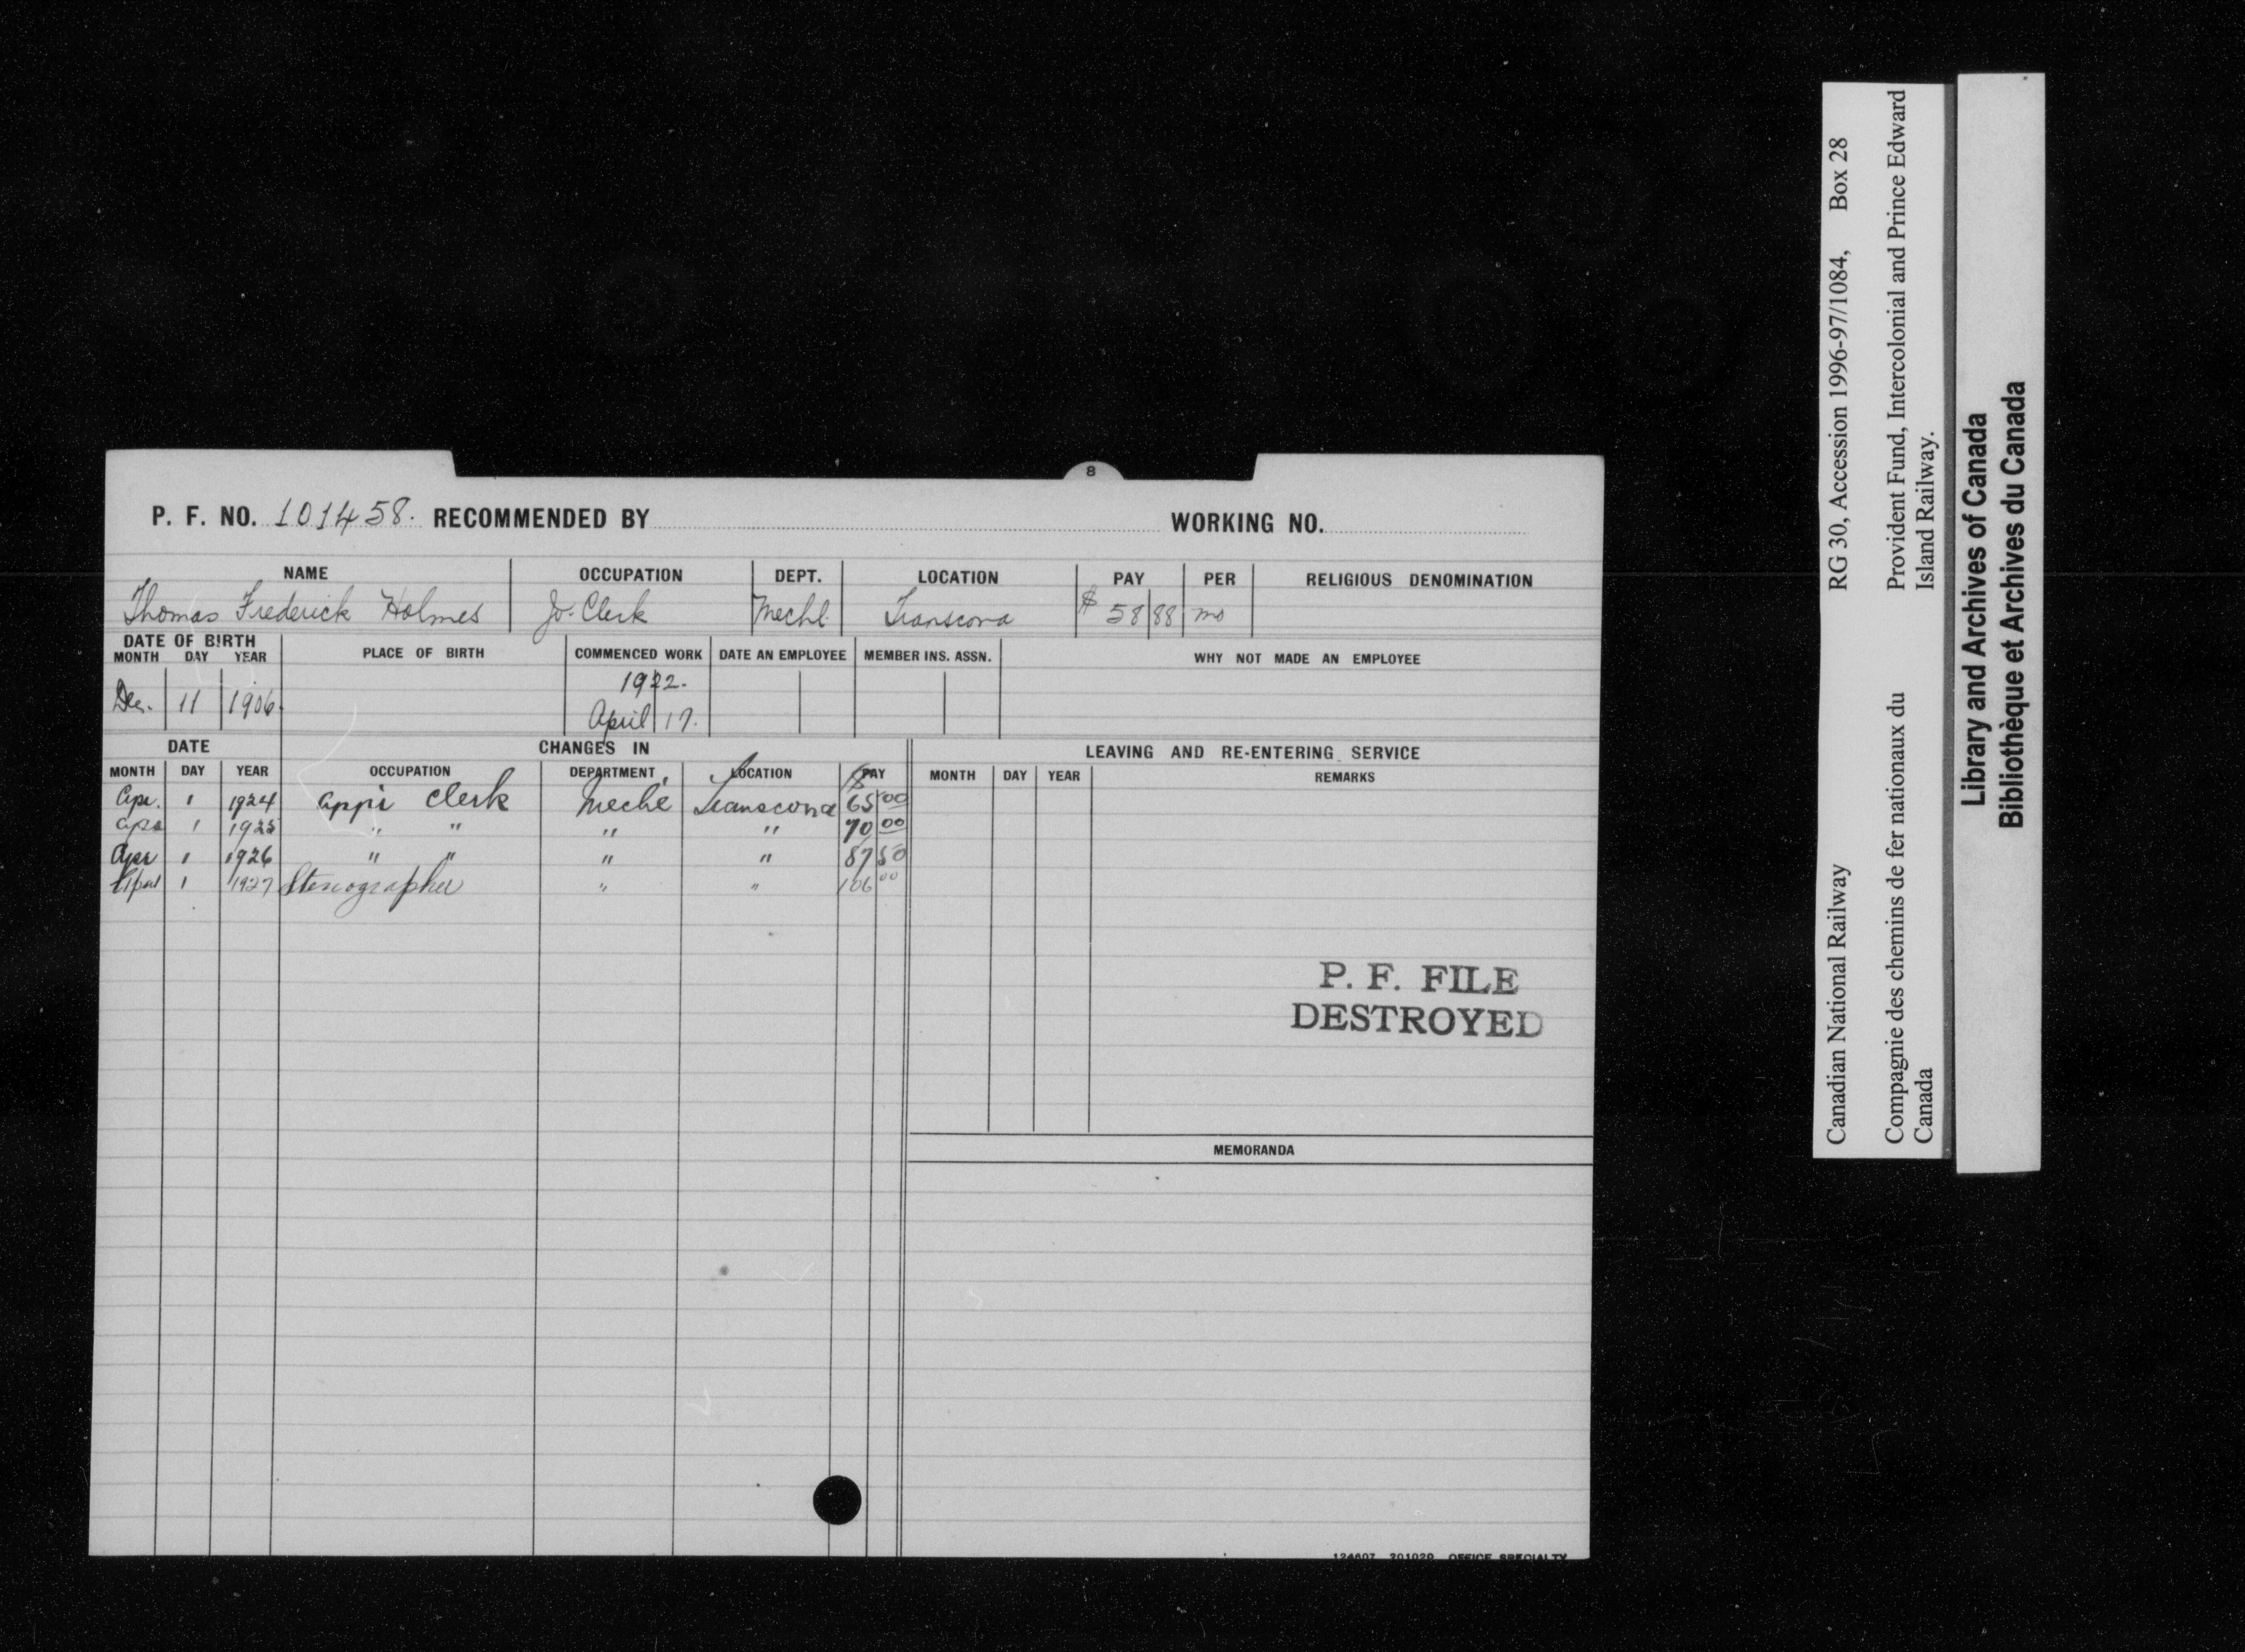 8
P. F. NO. 101458. RECOMMENDED BY WORKING NO.
NAME OCCUPATION DEPT. LOCATION PAY PER RELIGIOUS DENOMINATION
Thomas Frederick Holmes Jr. Clerk Mechl. Transcona $ 58 88 mo
DATE OF BIRTH
MONTH DAY YEAR PLACE OF BIRTH COMMENCED WORK DATE AN EMPLOYEE MEMBER INS. ASSN. WHY NOT MADE AN EMPLOYEE
1922.
Dec. 11 1906. April 17.
DATE CHANGES IN LEAVING AND RE-ENTERING SERVICE
MONTH DAY YEAR OCCUPATION DEPARTMENT LOCATION PAY MONTH DAY YEAR REMARKS
Apr. 1 1924 Appr Clerk Mechl Transcona $ 65 00
Apr 1 1925 " " " " 70 00
Apr 1 1926 " " " " 87 50
April 1 1927 Stenographer " " 106 00
P. F. FILE
DESTROYED
MEMORANDA
OFFICE SPECIALTY
Canadian National Railway RG 30, Accession 1996-97/1084, Box 28
Compagnie des chemins de fer nationaux du Provident Fund, Intercolonial and Prince Edward
Canada Island Railway.
Library and Archives of Canada
Bibliothèque et Archives du Canada